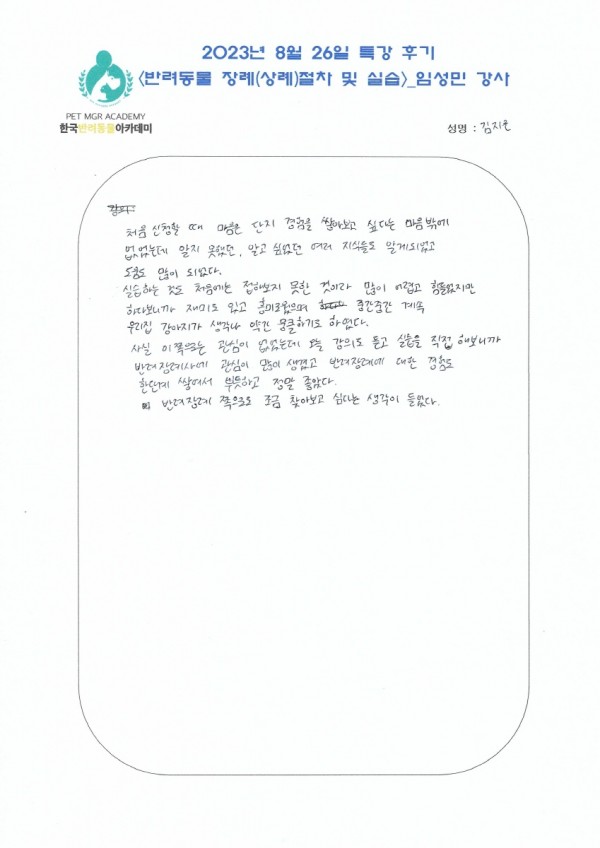 2023년 8월 26일 특강 후기
<반려동물 장례(상례)절차 및 실습>_임성민 강사
PET MGR ACADEMY
한국반려동물아카데미
성명 : 김지운
처음 신청할 때 마음은 단지 경험을 쌓아보고 싶다는 마음밖에
없었는데 알지 못했던, 알고 싶었던 여러 지식들도 알게되었고
도움도 많이 되었다.
실습하는 것도 처음에는 접해보지 못한 것이라 많이 어렵고 힘들었지만
하다보니까 재미도 있고 흥미로웠으며 중간중간 계속
우리집 강아지가 생각나 약간 뭉클하기도 하였다.
사실 이쪽으로는 관심이 없었는데 오늘 강의도 듣고 실습을 직접 해보니까
반려장례사에 관심이 많이 생겼고 반려장례에 대한 경험도
한단계 쌓여서 뿌듯하고 정말 좋았다.
반려장례 쪽으로도 조금 찾아보고 싶다는 생각이 들었다.